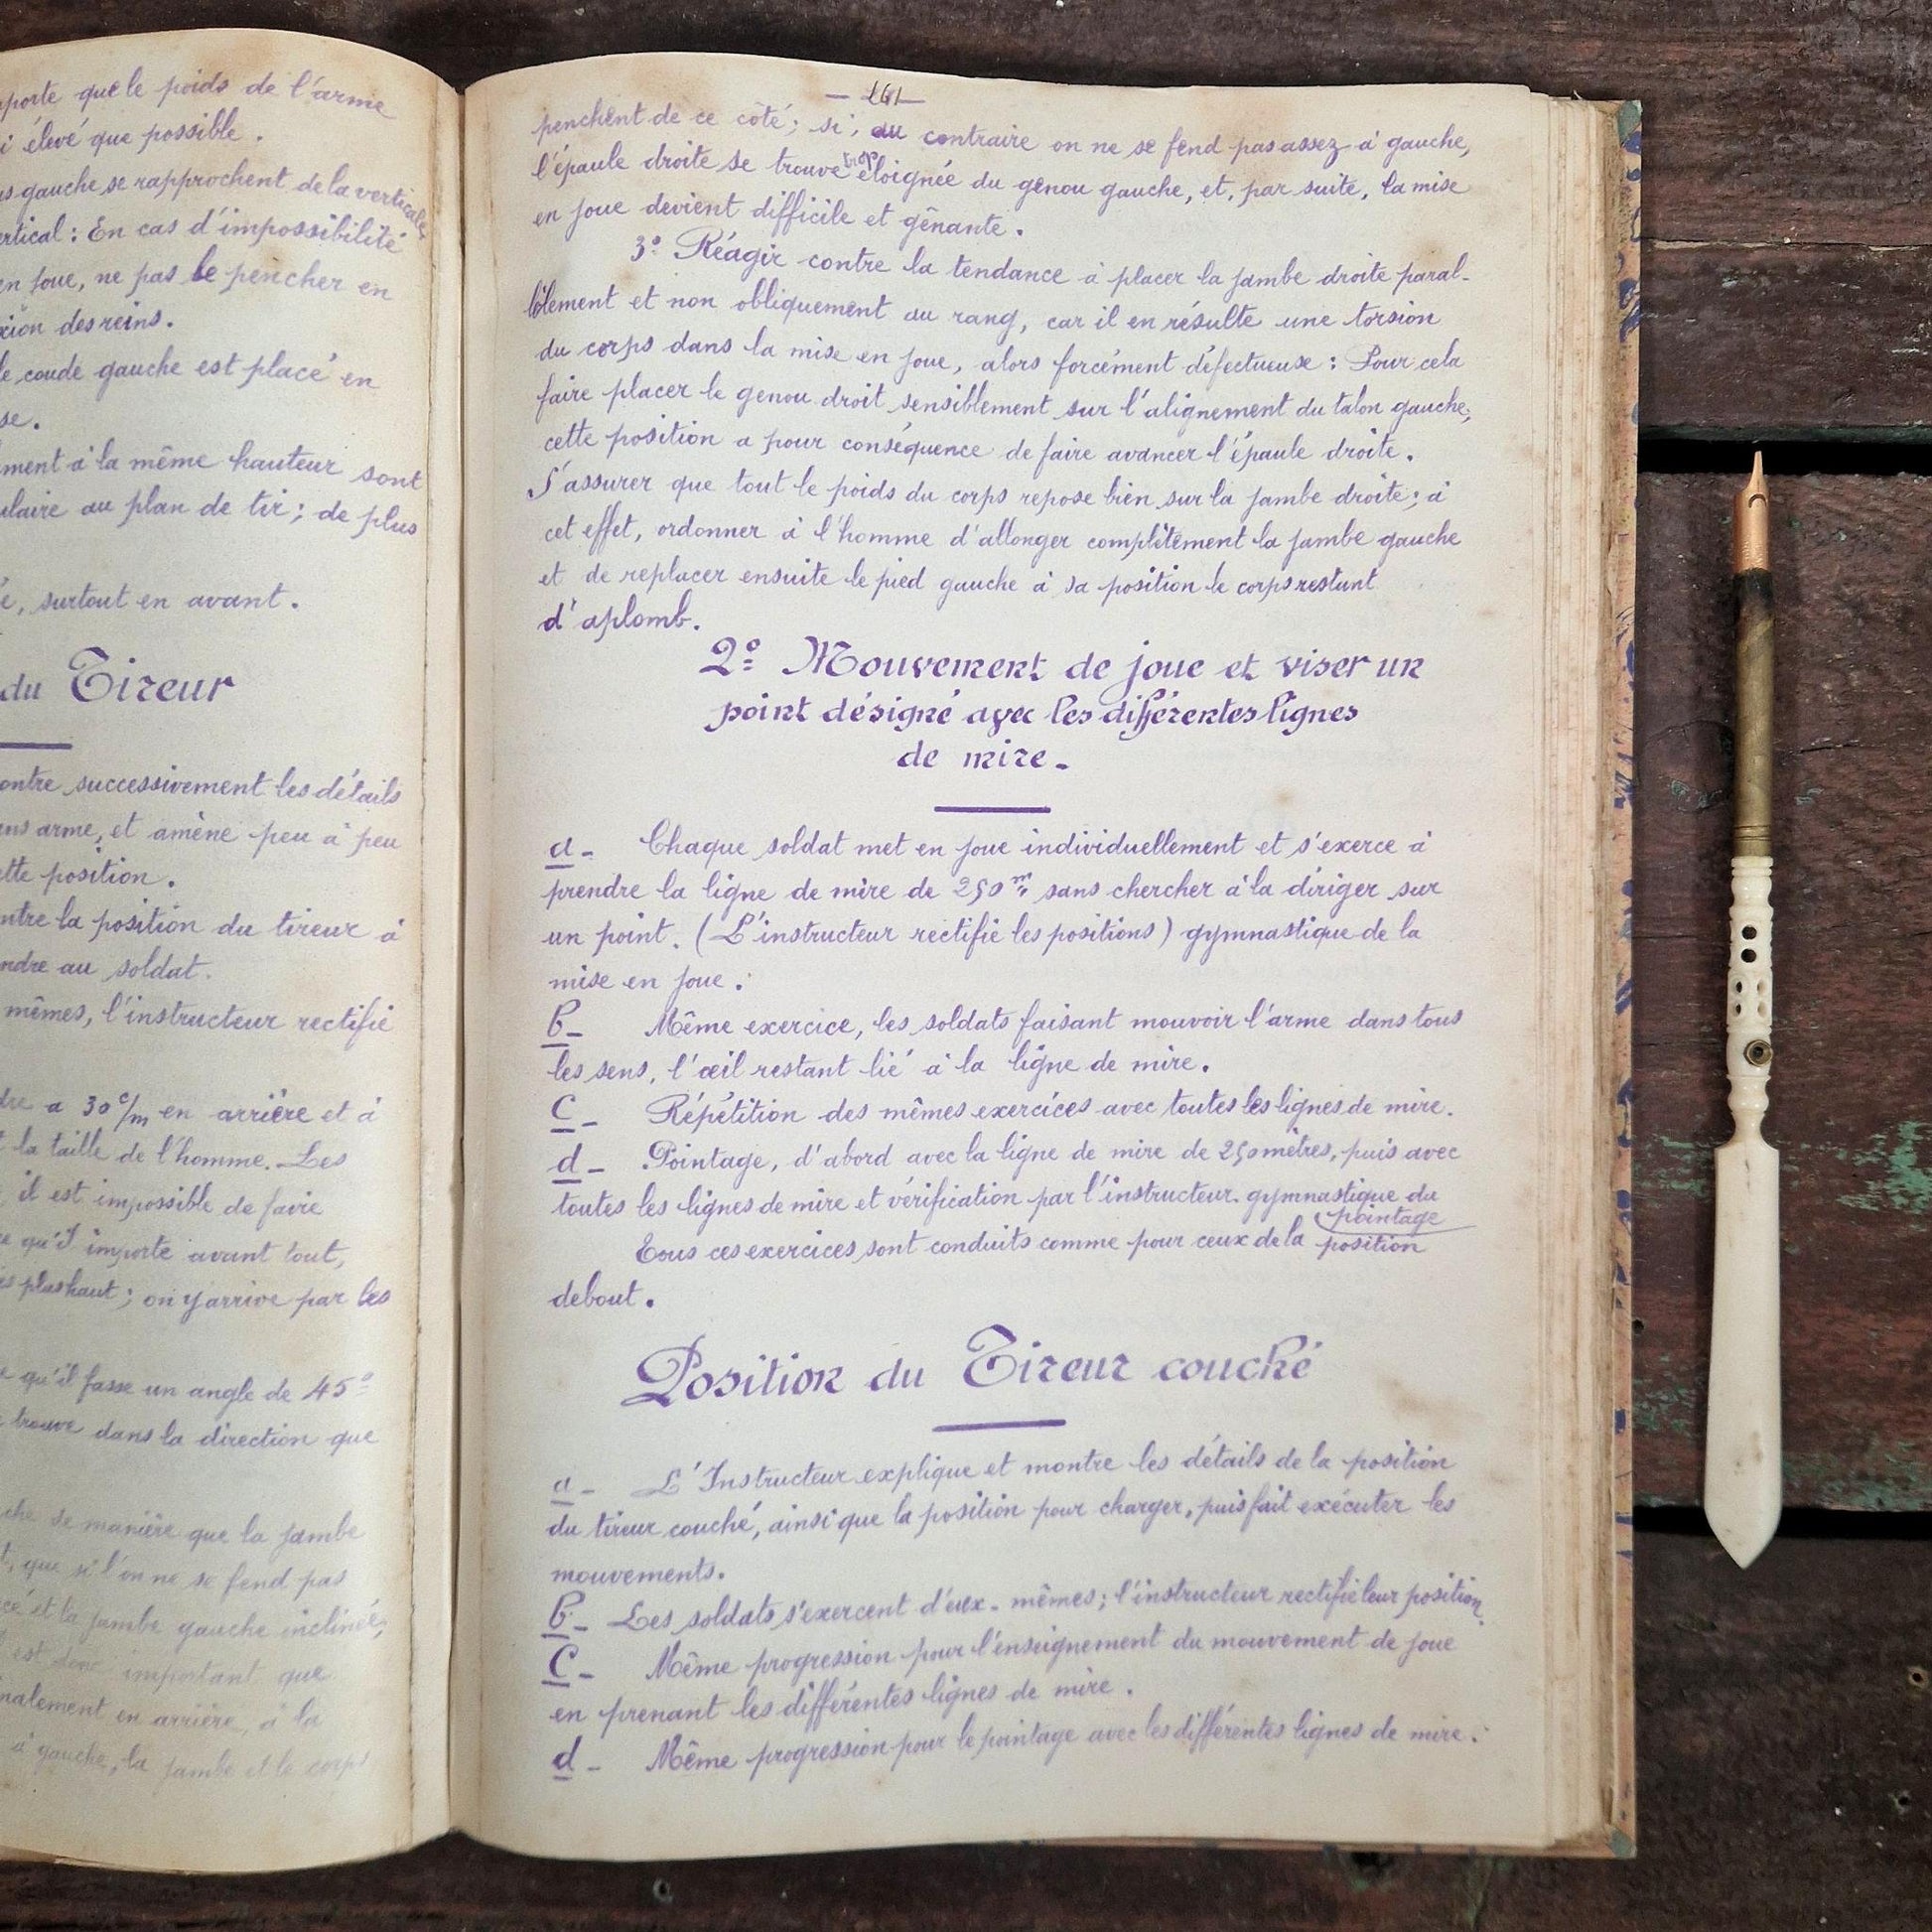 porte que le poids de l'arme
i élevé que possible.
s gauche se rapprochent de la verticale,
ertical : En cas d'impossibilité
en joue, ne pas le pencher en
xion des reins.
le coude gauche est placé en
se.
ment à la même hauteur sont
ulaire au plan de tir ; de plus
é, surtout en avant.
du Tireur
ontre successivement les détails
ans arme, et amène peu à peu
ette position.
ntre la position du tireur à
ndre au soldat.
mêmes, l'instructeur rectifie
dre a 30 c/m en arrière et à
t la taille de l'homme. Les
il est impossible de faire
qu'il importe avant tout,
plus haut ; on y arrive par les
qu'il fasse un angle de 45°
trouve dans la direction que
che de manière que la jambe
t, que si l'on ne se fend pas
cé et la jambe gauche inclinée,
est donc important que
nalement en arrière, à la
à gauche, la jambe et le corps
— 161 —
penchent de ce côté ; si, au contraire on ne se fend pas assez à gauche,
l'épaule droite se trouve trop éloignée du genou gauche, et, par suite, la mise
en joue devient difficile et gênante.
3° Réagir contre la tendance à placer la jambe droite paral-
lèlement et non obliquement au rang, car il en résulte une torsion
du corps dans la mise en joue, alors forcément défectueuse : Pour cela
faire placer le genou droit sensiblement sur l'alignement du talon gauche ;
cette position a pour conséquence de faire avancer l'épaule droite.
S'assurer que tout le poids du corps repose bien sur la jambe droite ; à
cet effet, ordonner à l'homme d'allonger complètement la jambe gauche
et de replacer ensuite le pied gauche à sa position le corps restant
d'aplomb.
2° Mouvement de joue et viser un
point désigné avec les différentes lignes
de mire -
a - Chaque soldat met en joue individuellement et s'exerce à
prendre la ligne de mire de 250 m sans chercher à la diriger sur
un point. (L'instructeur rectifie les positions) gymnastique de la
mise en joue.
b - Même exercice, les soldats faisant mouvoir l'arme dans tous
les sens, l'œil restant lié à la ligne de mire.
c - Répétition des mêmes exercices avec toutes les lignes de mire.
d - Pointage, d'abord avec la ligne de mire de 250 mètres, puis avec
toutes les lignes de mire et vérification par l'instructeur. gymnastique du
pointage
Tous ces exercices sont conduits comme pour ceux de la position
debout.
Position du Tireur couché
a - L'Instructeur explique et montre les détails de la position
du tireur couché, ainsi que la position pour charger, puis fait exécuter les
mouvements.
b - Les soldats s'exercent d'eux-mêmes ; l'instructeur rectifie leur position.
c - Même progression pour l'enseignement du mouvement de joue
en prenant les différentes lignes de mire.
d - Même progression pour le pointage avec les différentes lignes de mire.